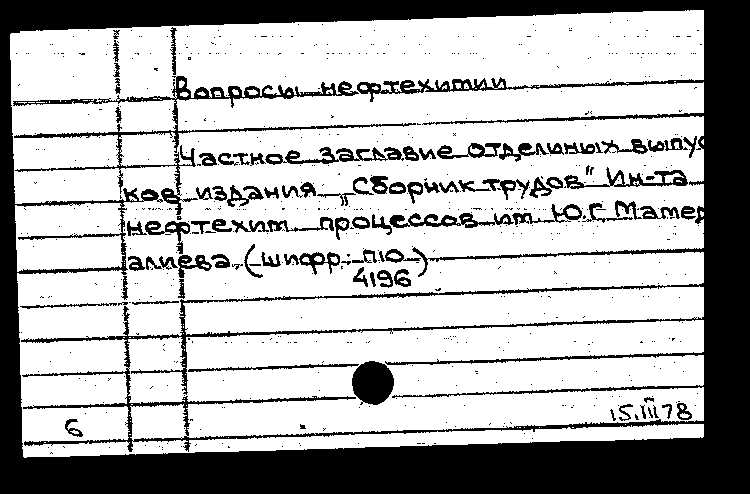 Вопросы нефтехимии
Частное заглавие отдельных выпус
ков издания „Сборник трудов" Ин-та
нефтехим. процессов им. Ю.Г. Мамед
алиева (шифр: П10
4196)
6
15.III 78